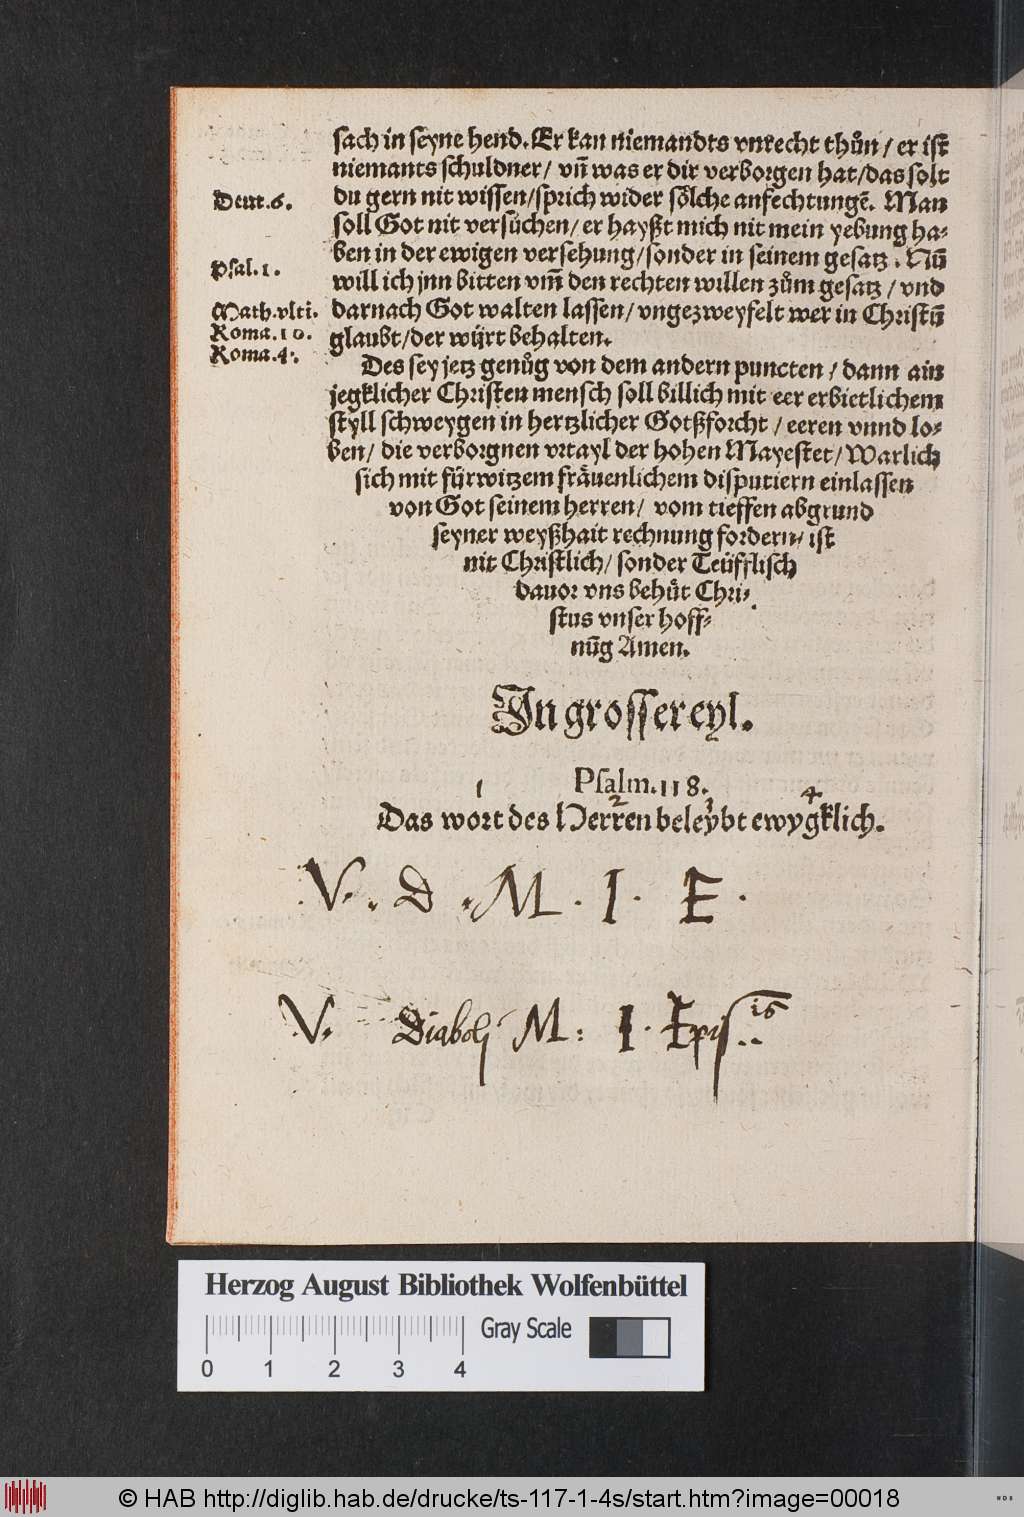 sach in seyne hend. Er kan niemandts vnrecht thůn / er ist
niemants schuldner / vn̄ was er dir verborgen hat / das solt
Deut. 6.
du gern nit wissen / sprich wider sölche anfechtungē. Man
soll Got nit versůchen / er hayßt mich nit mein yebung ha-
ben in der ewigen versehung / sonder in seinem gesatz. Nū
Psal. 1.
will ich jnn bitten vm̄ den rechten willen zům gesatz / vnd
Math. vlti.
darnach Got walten lassen / vngezweyfelt wer in Christū
Roma. 10.
glaubt / der würt behalten.
Roma. 4.
Des sey jetz genůg von dem andern puncten / dann ain
jegklicher Christen mensch soll billich mit eer erbietlichem
styll schweygen in hertzlicher Gotßforcht / eeren vnnd lo-
ben / die verborgnen vrtayl der hohen Mayestet / Warlich
sich mit fürwitzem fräuenlichem disputiern einlassen
von Got seinem herren / vom tieffen abgrund
seyner weyßhait rechnung fordern / ist
nit Christlich / sonder Teüfflisch
dauor vns behüt Chri-
stus vnser hoff-
nūg Amen.
In grosser eyl.
Psalm. 118.
1 2 3 4
Das wort des Herren beleybt ewygklich.
V. . D . M . I . E .
V. Diaboli M : I . Epis..is
Herzog August Bibliothek Wolfenbüttel
Gray Scale
0 1 2 3 4
© HAB http://diglib.hab.de/drucke/ts-117-1-4s/start.htm?image=00018